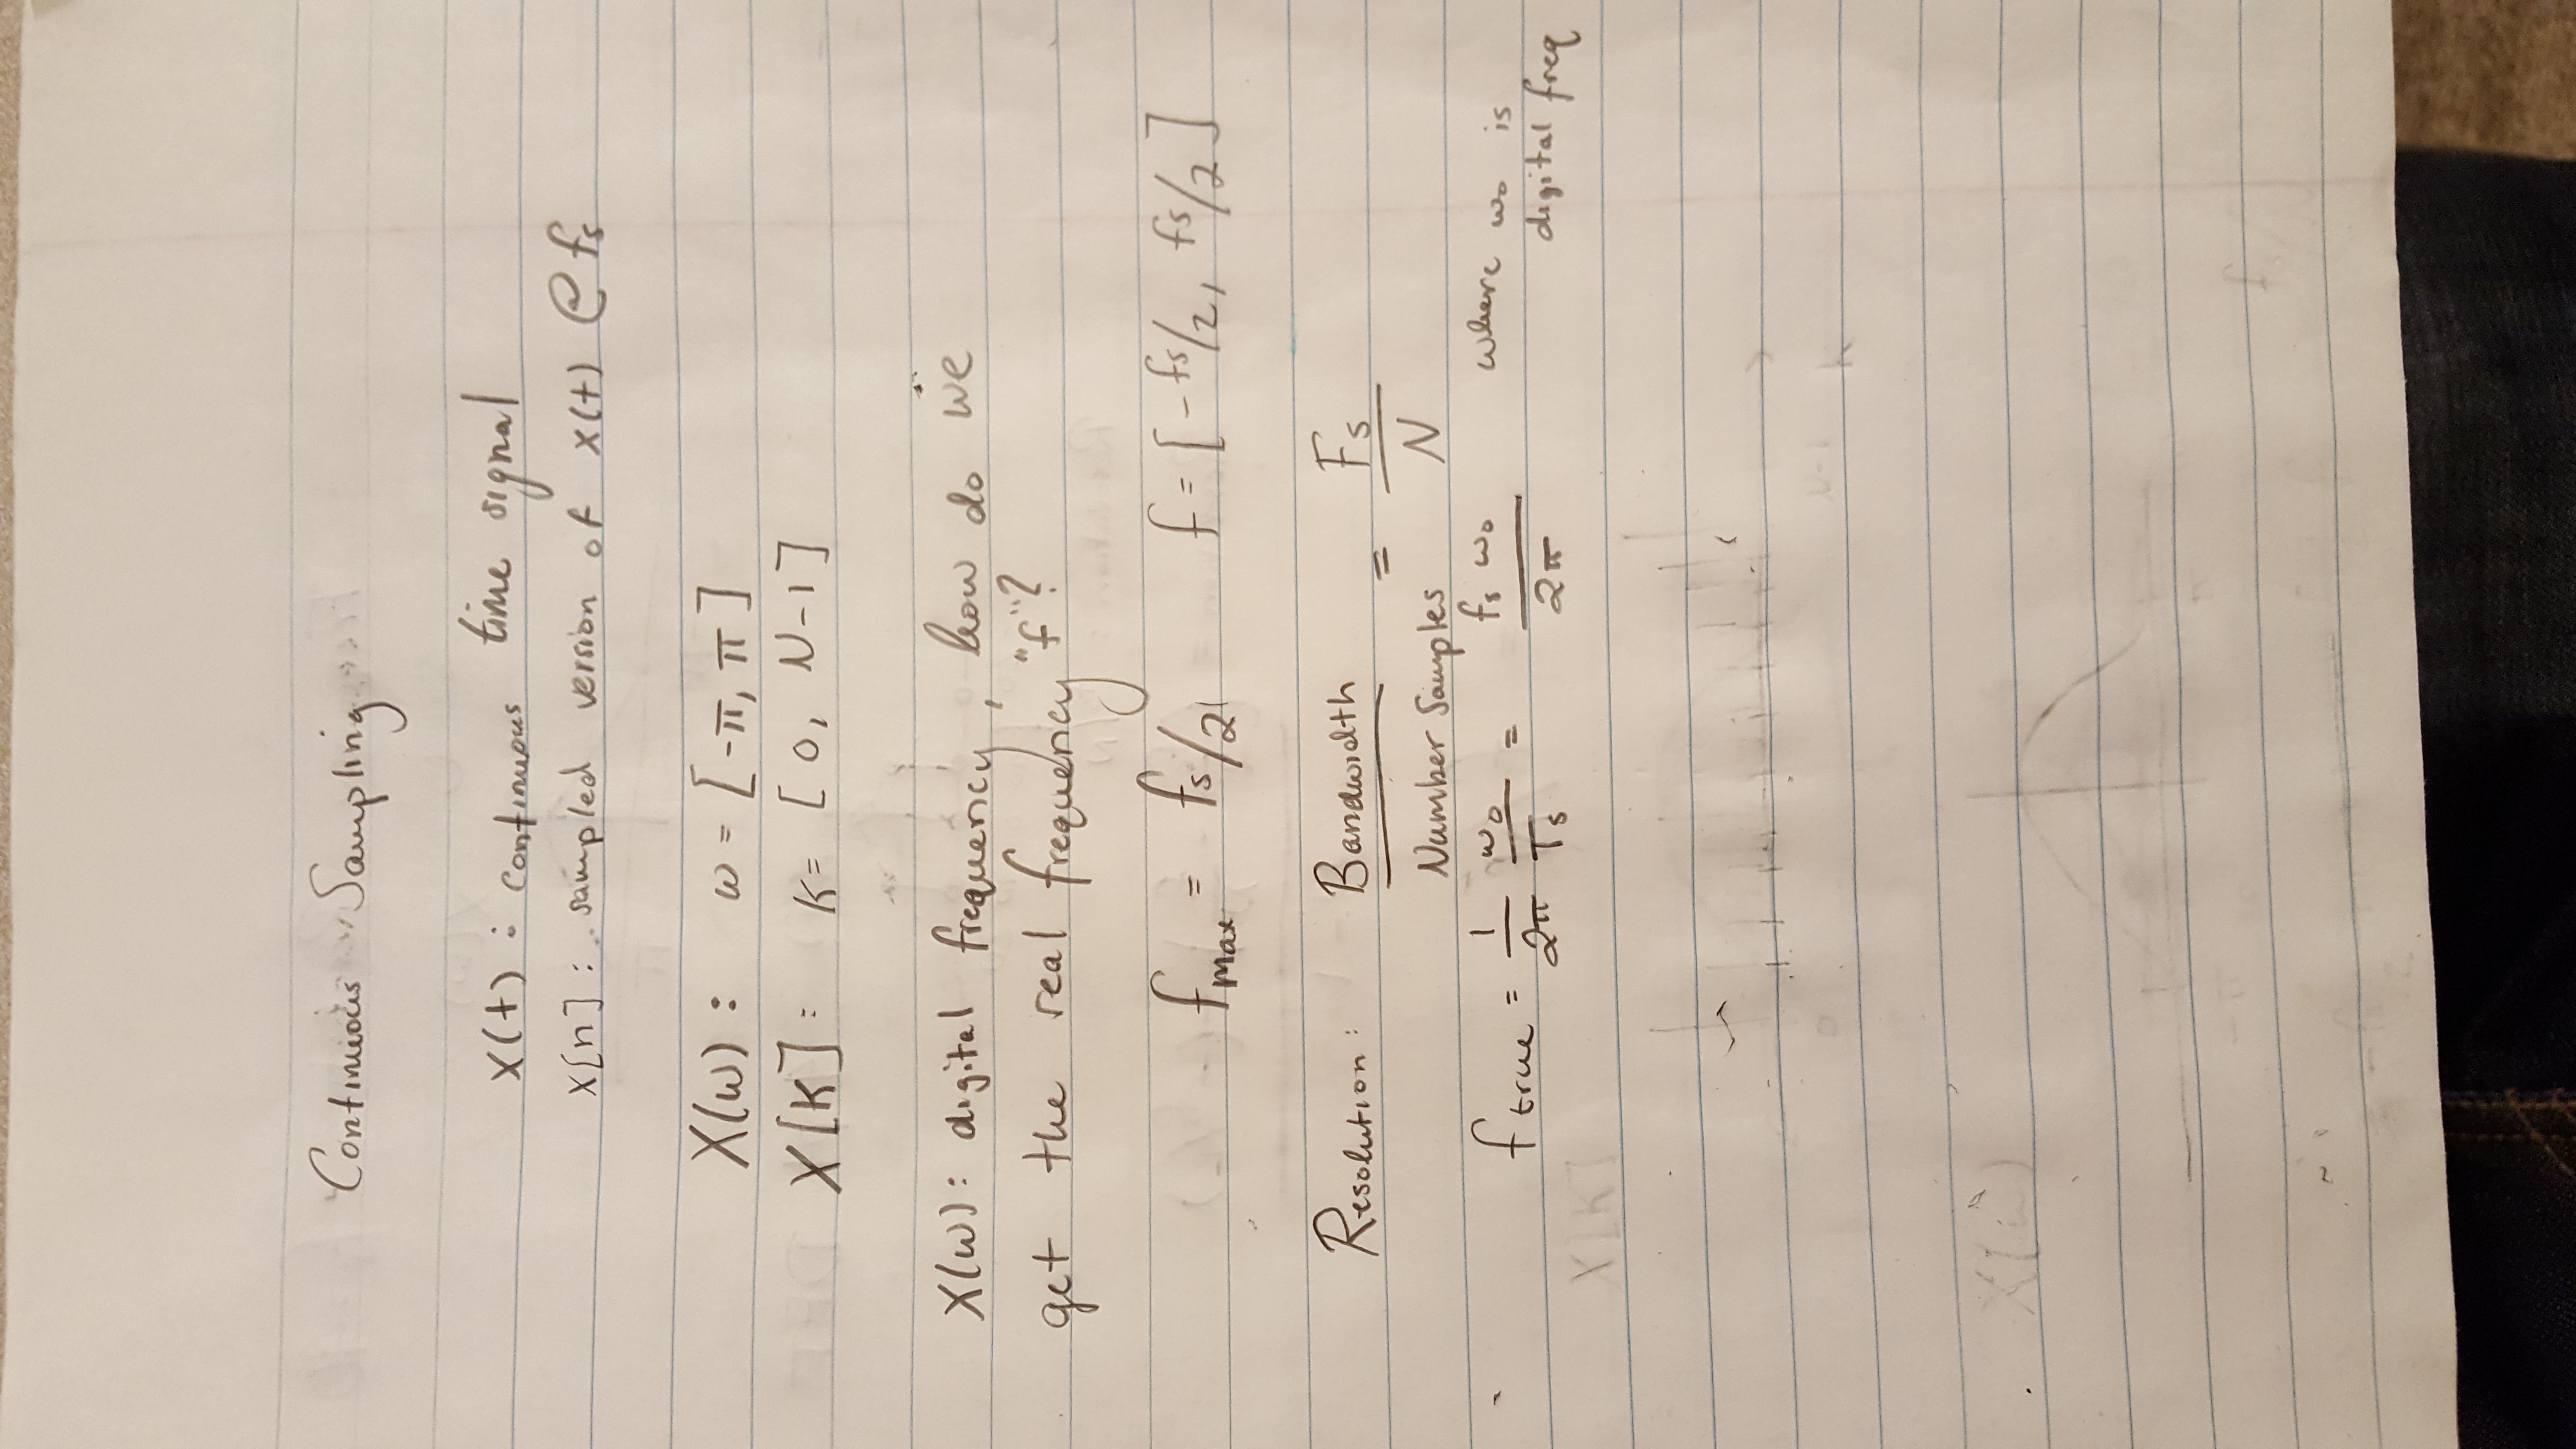 Continuous Sampling
x(t) : continuous time signal
x[n] : sampled version of x(t) @ fs
X(ω) : ω = [-π, π]
X[K] : K = [0, N-1]
X(ω) : digital frequency, how do we
get the real frequency "f"?
fmax = fs/2 f = [-fs/2, fs/2]
Resolution : Bandwidth / Number Samples = Fs / N
ftrue = 1/2π ω₀/Ts = fs ω₀ / 2π where ω₀ is
digital freq